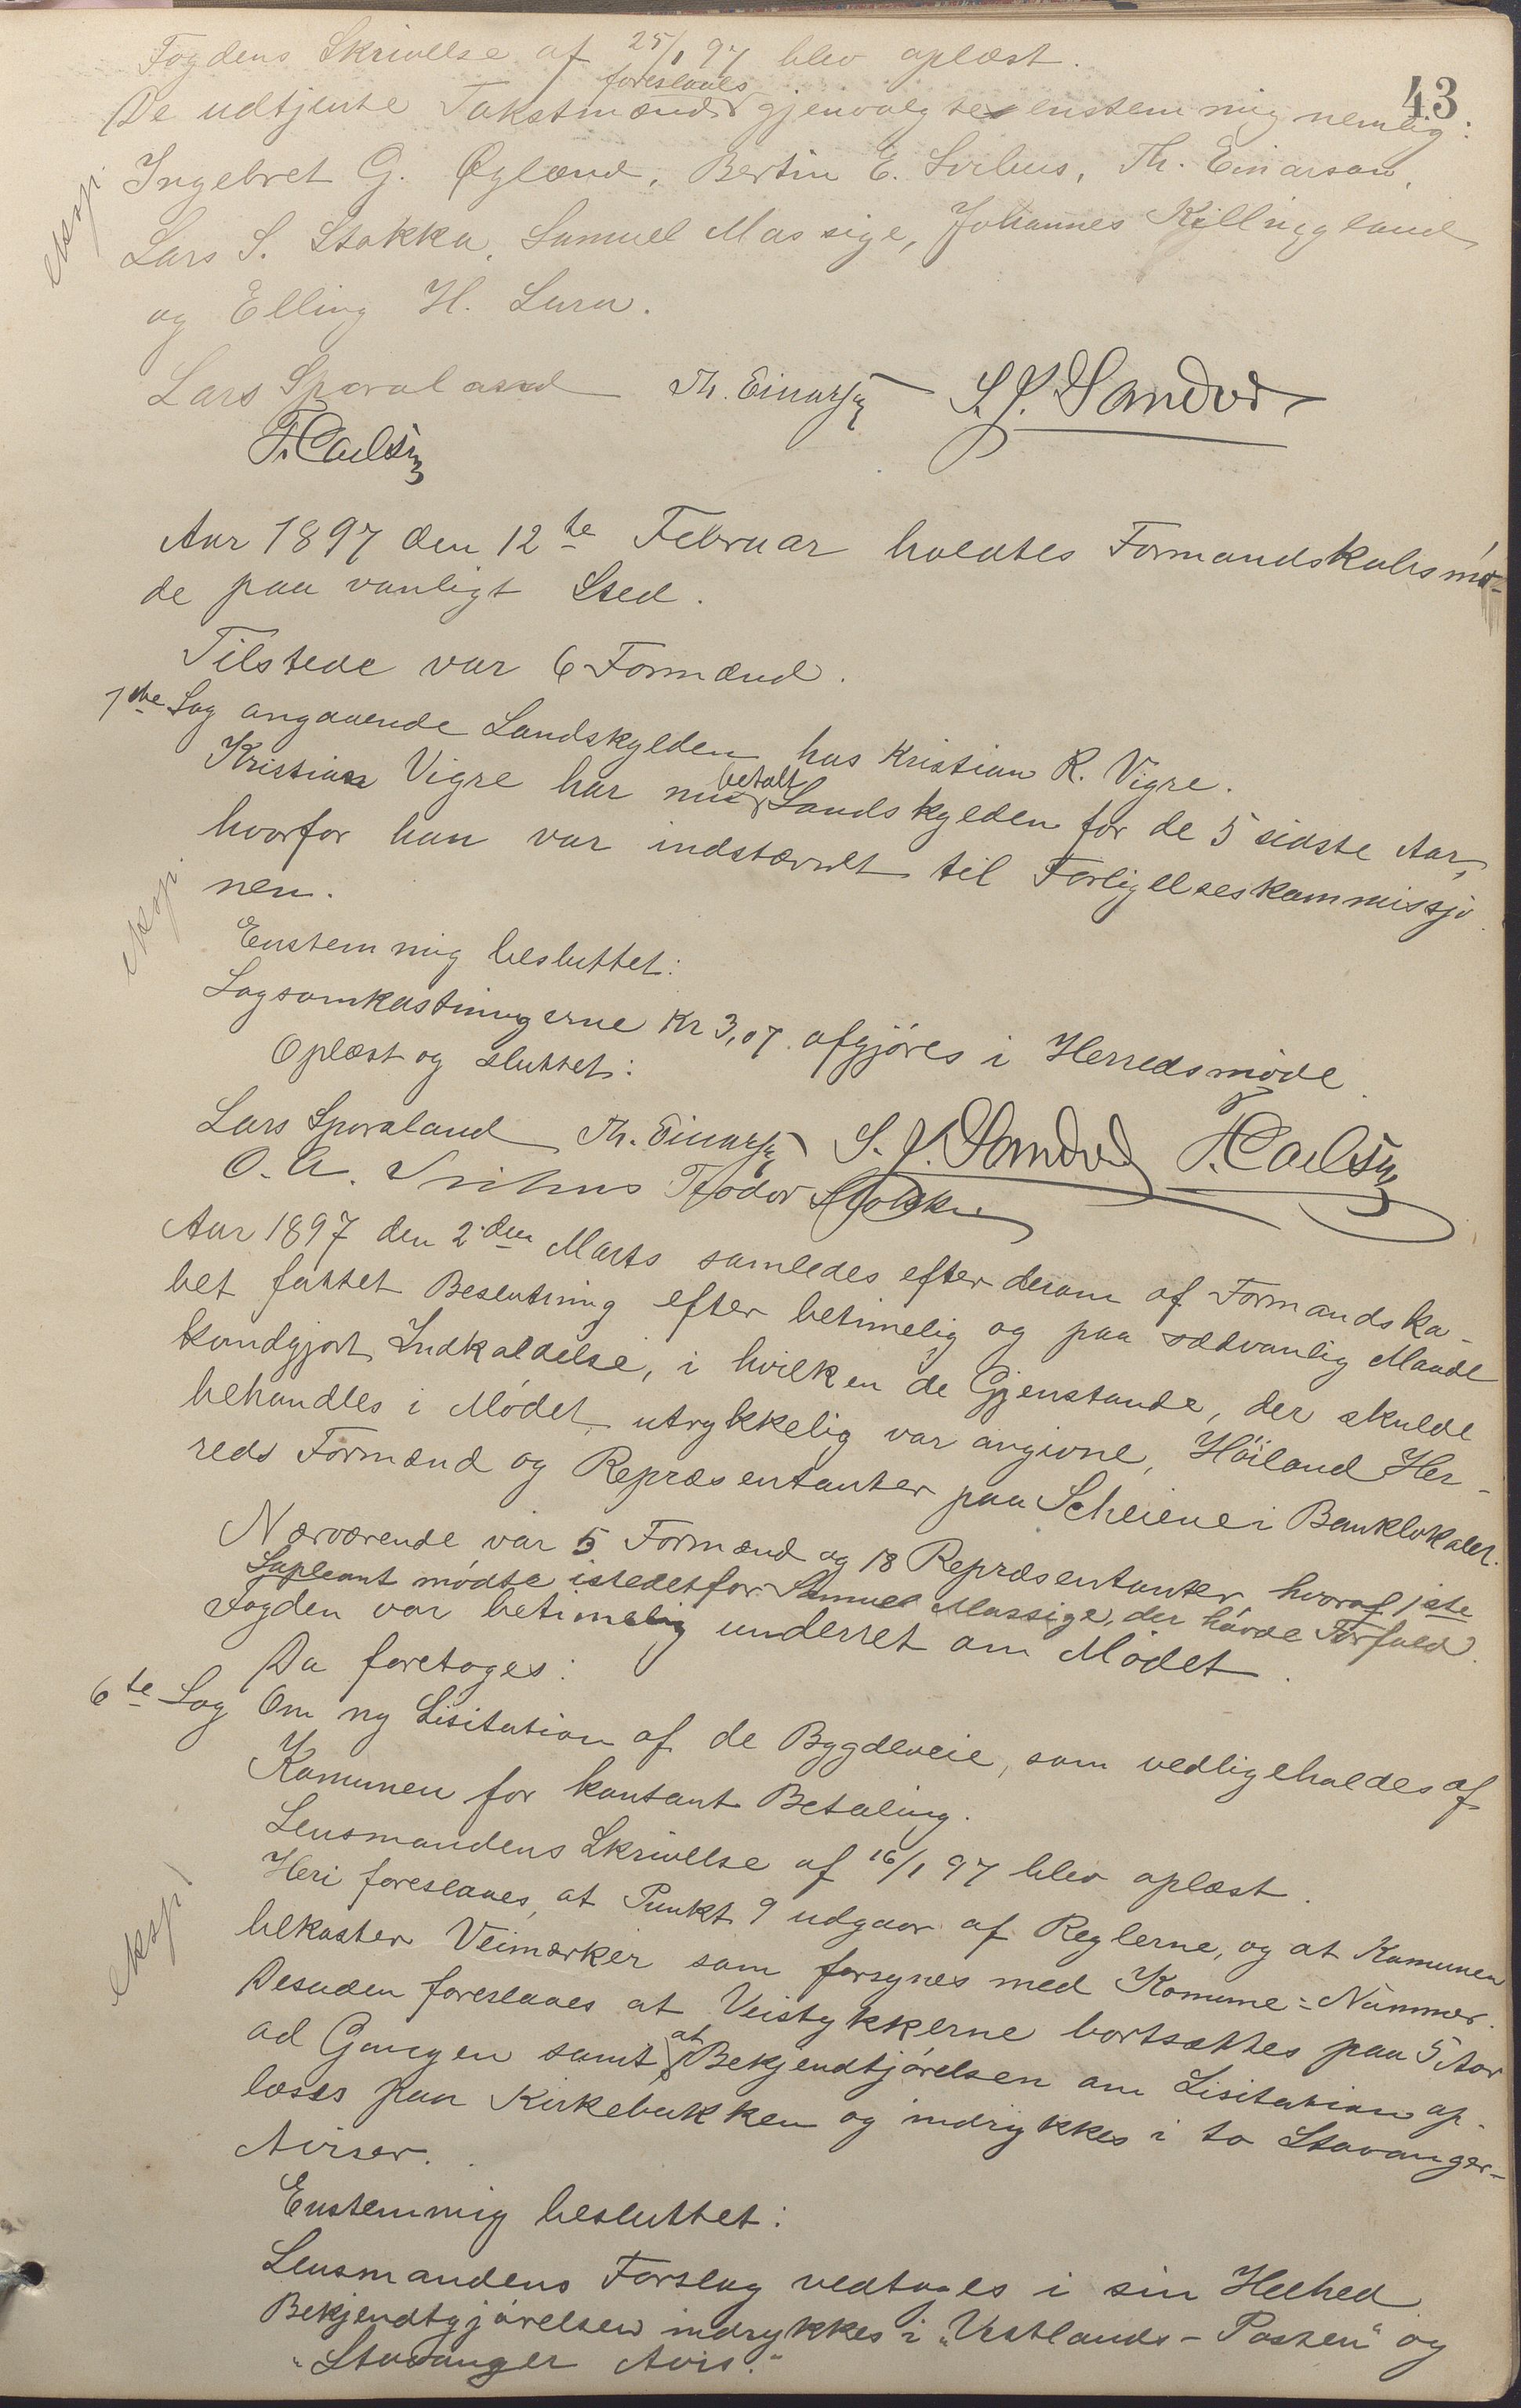 43
Fogdens Skrivelse af 25/1 97 blev oplæst.
foreslaaes
De udtjente Takstmænd gjenvalgtes enstemmig nemlig:
eksp.
Ingebret G. Øglænd, Bertin E. Svihus, Th. Einarson,
Lars S. Stokka, Samuel Massige, Johannes Kellingland
og Elling H. Lura.
Lars Sporaland Th. Einarsen S. J. Sandvd
T. Carlsen
Aar 1897 den 12te Februar holdtes Formandskabsmø-
de paa vanligt Sted.
Tilstede var 6 Formænd.
1ste Sag angaaende Landskylden hos Kristian R. Vigre.
betalt
Kristian Vigre har nu Landskylden for de 5 sidste Aar,
hvorfor han var indstævnet til Forligelseskommissjo
nen.
eksp.
Enstemmig besluttet:
Sagsomkostningerne Kr 3,07 afgjøres i Herredsmøde.
Oplæst og sluttet:
Lars Sporaland Th. Einarsen S. J. Sandvd T. Carlsen
O. A. Svihus Teodor Stokka
Aar 1897 den 2den Marts samledes efter derom af Formandska-
bet fattet Beslutning efter betimelig og paa sædvanlig Maade
kundgjort Indkaldelse, i hvilken de Gjenstande, der skulde
behandles i Mødet, utrykkelig var angivne, Høiland Her-
reds Formænd og Repræsentanter paa Scheiene i Banklokalet.
Nærværende var 5 Formænd og 18 Repræsentanter, hvoraf 1ste
Supleant mødte istedetfor Samuel Massige, der havde Forfald.
Fogden var betimelig underret om Mødet.
Da foretoges:
6te Sag Om ny Lisitation af de Bygdeveie, som vedligeholdes af
Komunen for kontant Betaling.
Lensmandens Skrivelse af 16/1 97 blev oplæst.
eksp.
Heri foreslaaes, at Punkt 9 udgaar af Reglerne, og at Komunen
bekoster Veimærker som forsynes med Komune=Nummer.
Desuden foreslaaes at Veistykkerne bortsættes paa 5 Aar
at
ad Gangen samt Bekjendtjørelsen om Lisitation op-
læses paa Kirkebakken og indrykkes i to Stavanger-
Aviser.
Enstemmig besluttet:
Lensmandens Forslag vedtages i sin Helhed
Bekjendtgjørelsen indrykkes i "Vestlands-Posten" og
"Stavanger Avis."